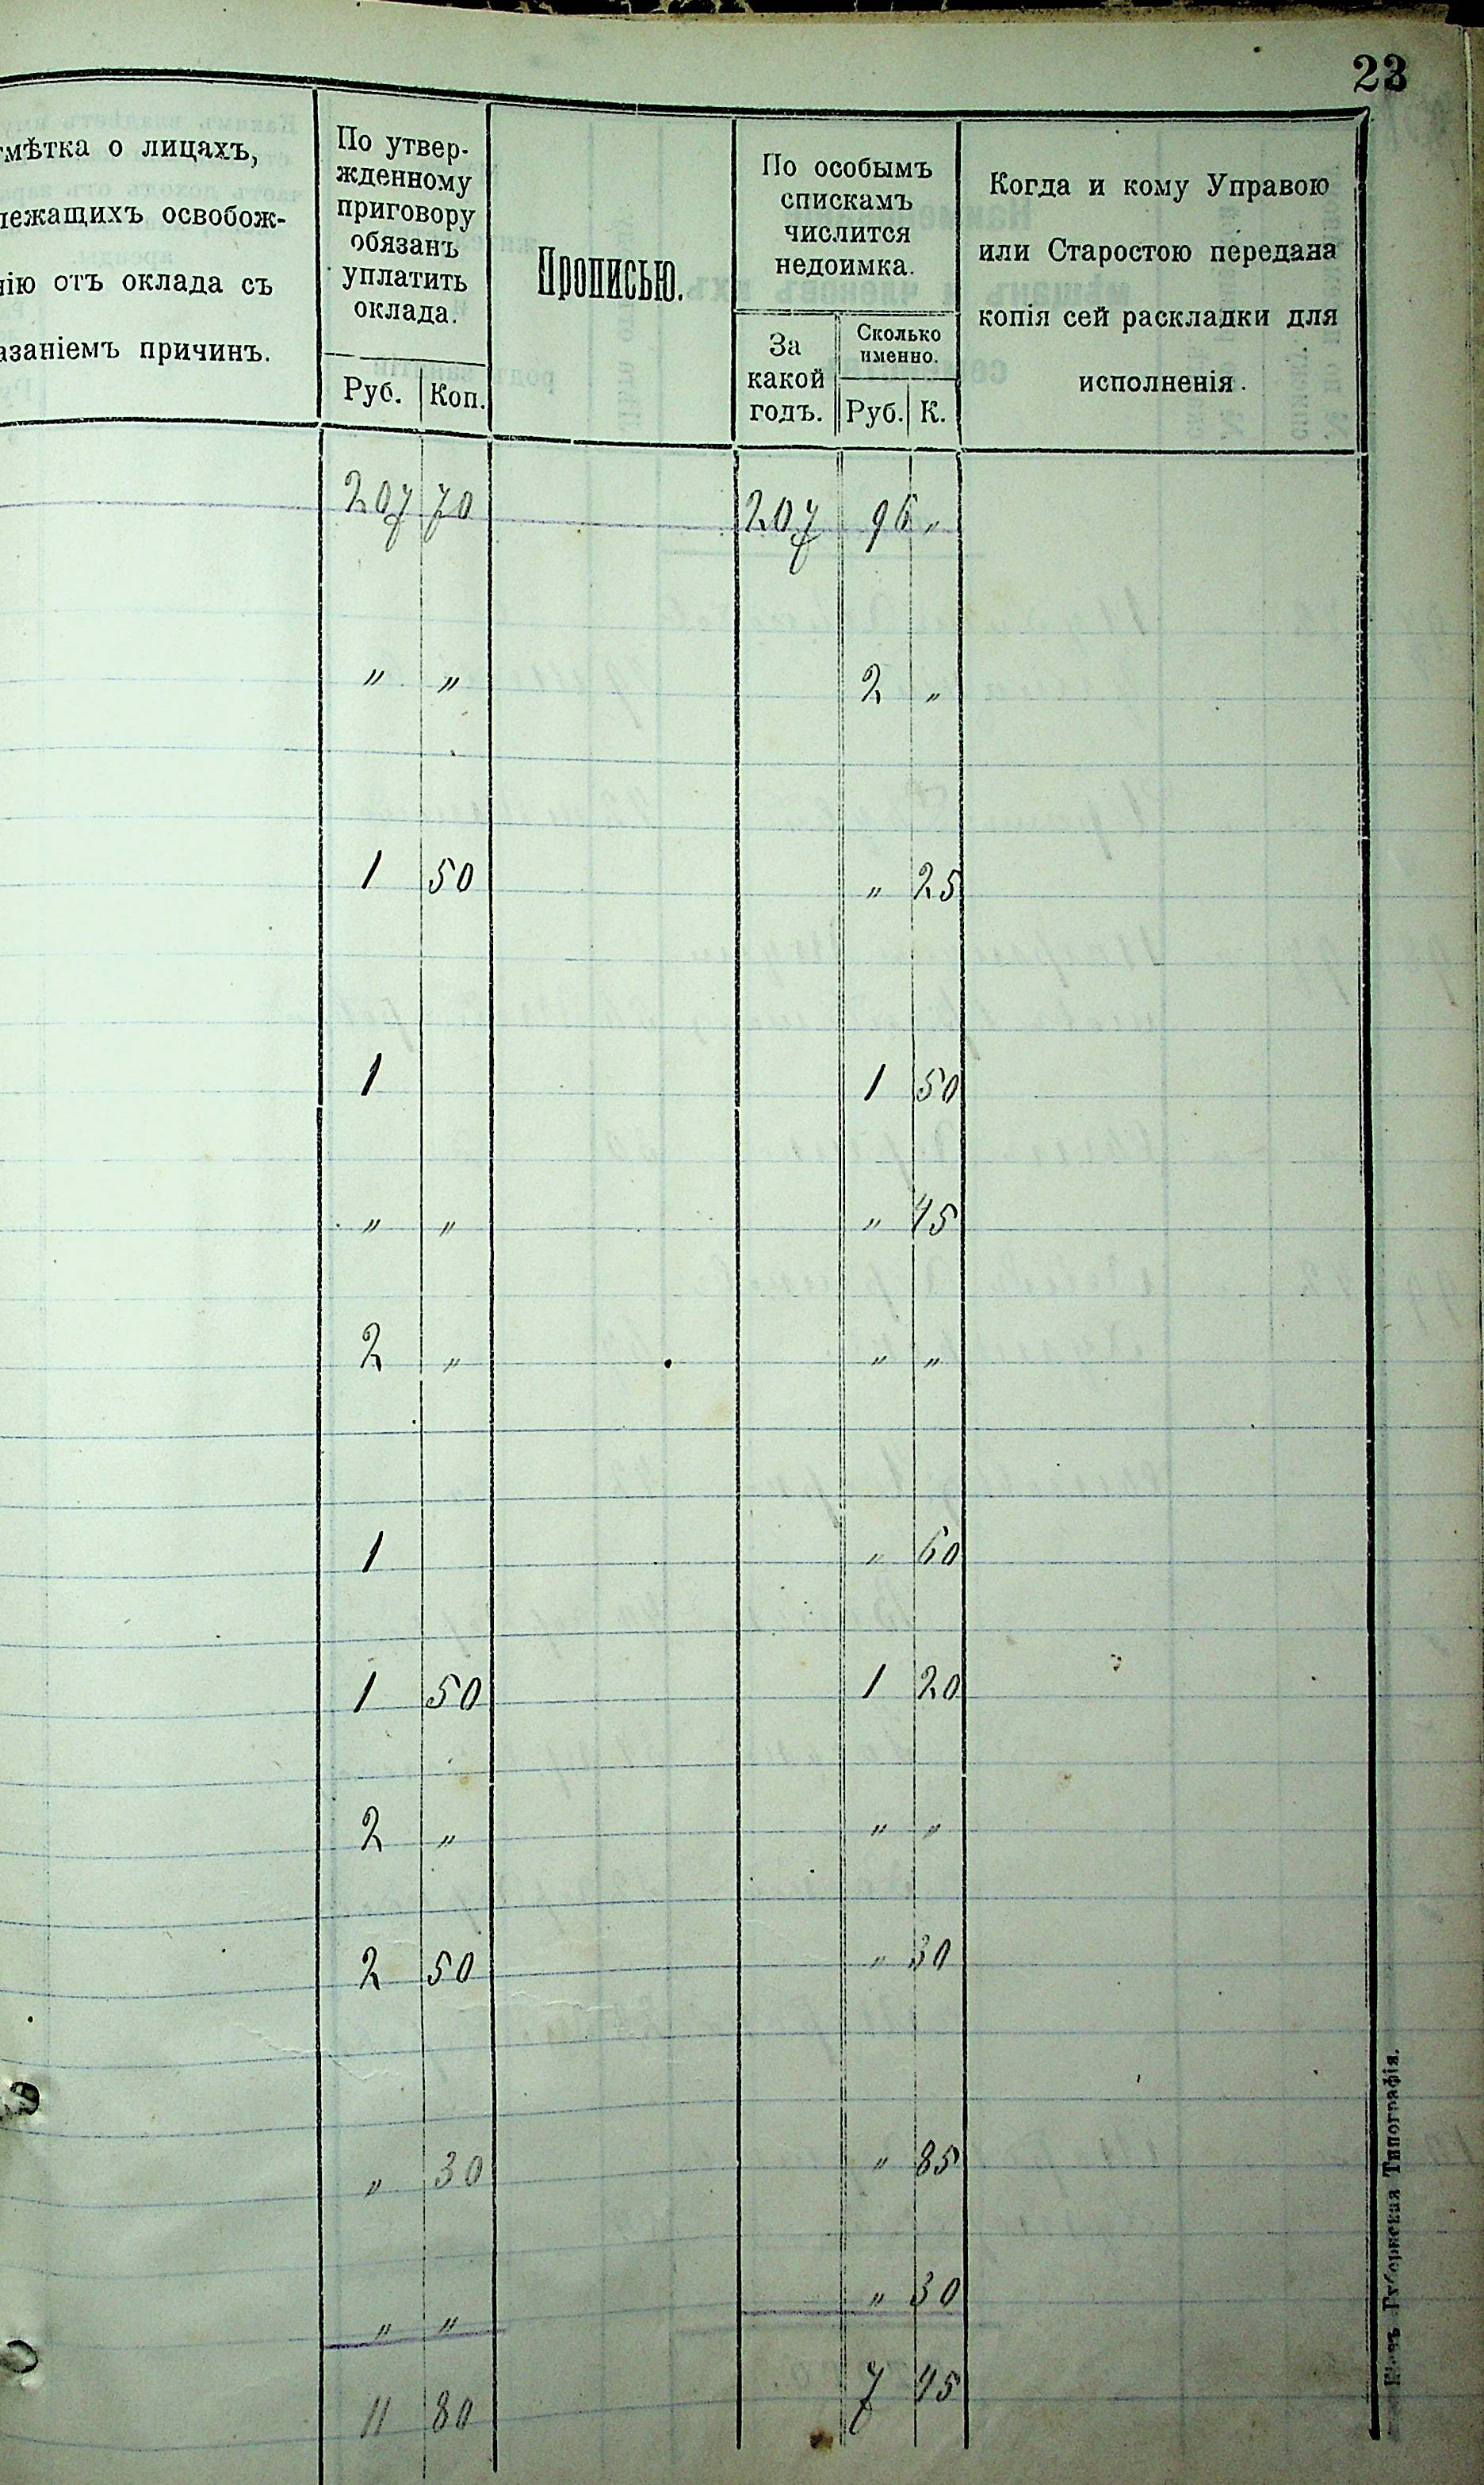 23
тмѣтка о лицахъ,
лежащихъ освобож-
нію отъ оклада съ
азаніемъ причинъ.
По утвер-
жденному
приговору
обязанъ
уплатить
оклада.
Руб. Коп.
Прописью.
По особымъ
спискамъ
числится
недоимка.
За
какой
годъ.
Сколько
именно.
Руб. К.
Когда и кому Управою
или Старостою передана
копія сей раскладки для
исполненія.
207 70 207 96 „
„ „ 2 „
1 50 „ 25
1 1 50
„ „ „ 45
2 „ „ „
1 „ 60
1 50 1 20
2 „ „ „
2 50 „ 30
„ 30 „ 85
„ „ „ 30
11 80 7 45
Кіевъ Губернская Типографія.